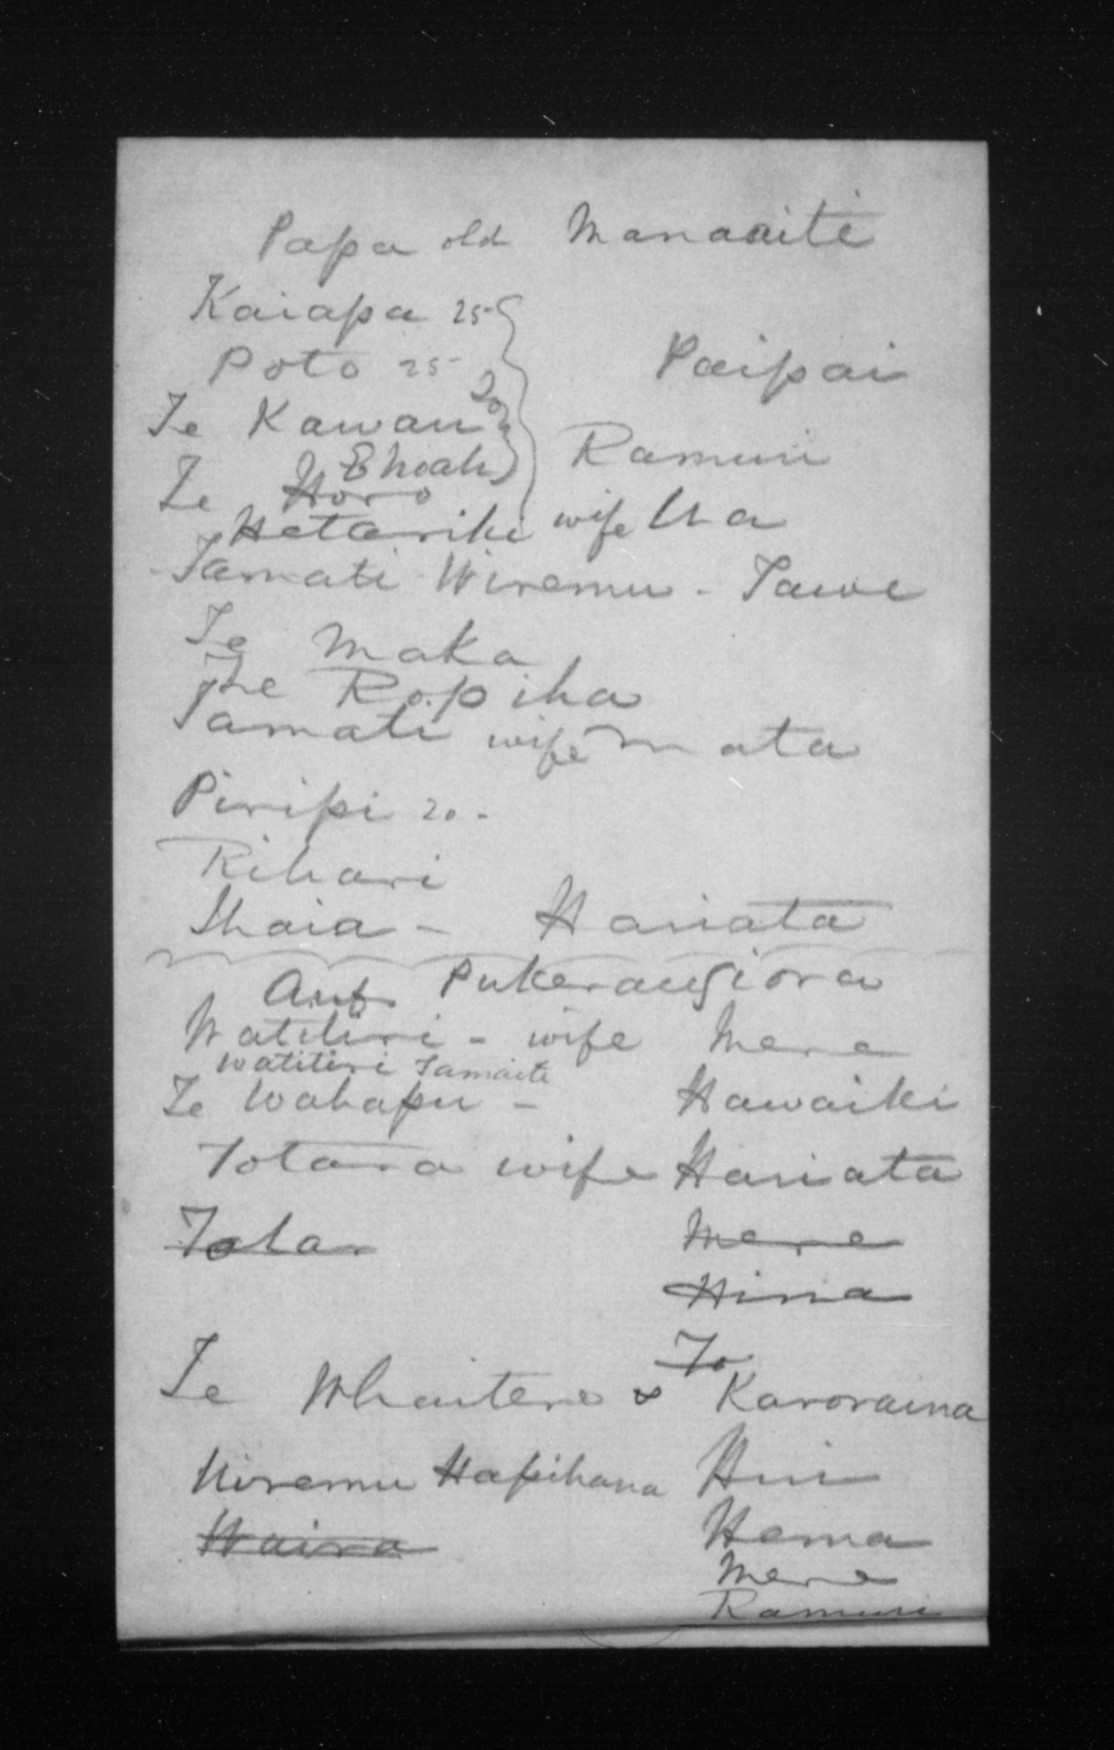 Papa old Manaaiti
Kaiapa 25
Poto 25 Paipai
Te Kawau 20
Ehoah Ramuri
Te Horo
Hetariki wife Ua
Tamati Wiremu - Tawe
Te Maka
The Ropiha
Tamati wife Mata
Piripi 20 -
Rihari
Ihaia - Hariata
Pukerangiora
Watitiri - wife Mere
Watitiri Tamaiti
Te Wahapu - Hawaiki
Totara wife Hariata
Tola Mere
Hina
To
Te Whaitere & Karoraina
Wiremu Hapihana Hui
Waira Hema
Mere
Ramuri